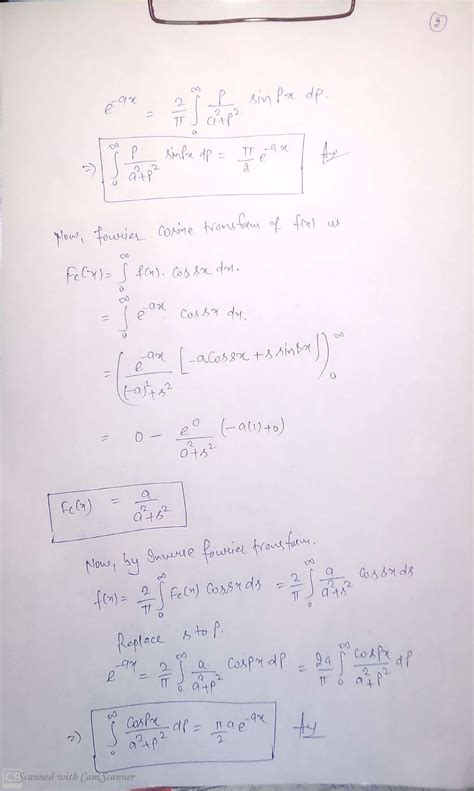 ②
e^{-ax} = \frac{2}{π} ∫_0^∞ \frac{p}{a²+p²} sin px dp.
⇒ ∫_0^∞ \frac{p}{a²+p²} sin px dp = \frac{π}{2} e^{-ax}
Now, fourier cosine transform of f(x) is
Fc(x) = ∫_0^∞ f(x). cos sx dx.
= ∫_0^∞ e^{-ax}. cos sx dx.
= ( \frac{e^{-ax}}{(-a)²+s²} [-a cos sx + s sin sx] )_0^∞
= 0 - \frac{e^0}{a²+s²} (-a(1)+0)
Fc(x) = \frac{a}{a²+s²}
Now, by Inverse fourier transform.
f(x) = \frac{2}{π} ∫_0^∞ Fc(x) cos sx ds = \frac{2}{π} ∫_0^∞ \frac{a}{a²+s²} cos sx ds
Replace s to p.
e^{-ax} = \frac{2}{π} ∫_0^∞ \frac{a}{a²+p²} cos px dp = \frac{2a}{π} ∫_0^∞ \frac{cos px}{a²+p²} dp
⇒ ∫_0^∞ \frac{cos px}{a²+p²} dp = \frac{π}{2} a e^{-ax}
CS Scanned with CamScanner